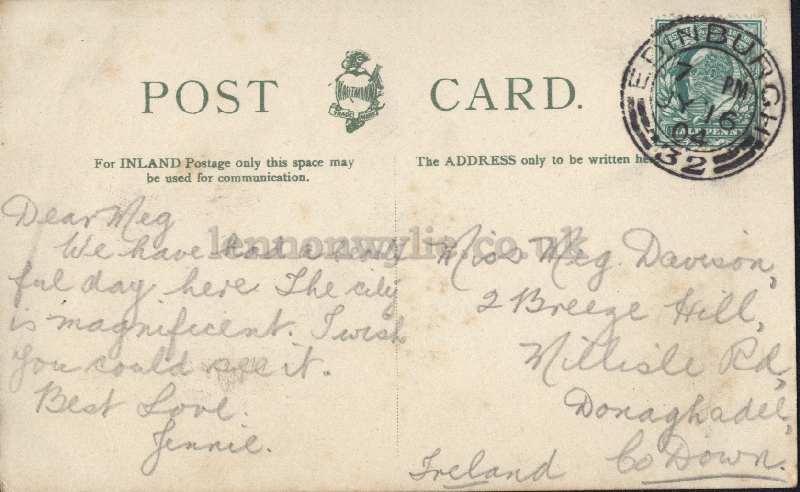 POST CARD.
HARTMANN
TRADE MARK
For INLAND Postage only this space may
be used for communication.
The ADDRESS only to be written he
EDINBURGH
7 PM
16
04
32
HALFPENNY
lennonwylie.co.uk
Dear Meg
We have had a
ful day here The city
is magnificent. I wish
you could see it.
Best Love.
Jennie.
Miss Meg Davison,
2 Breeze Hill,
Millisle Rd,
Donaghadee,
Co Down.
Ireland